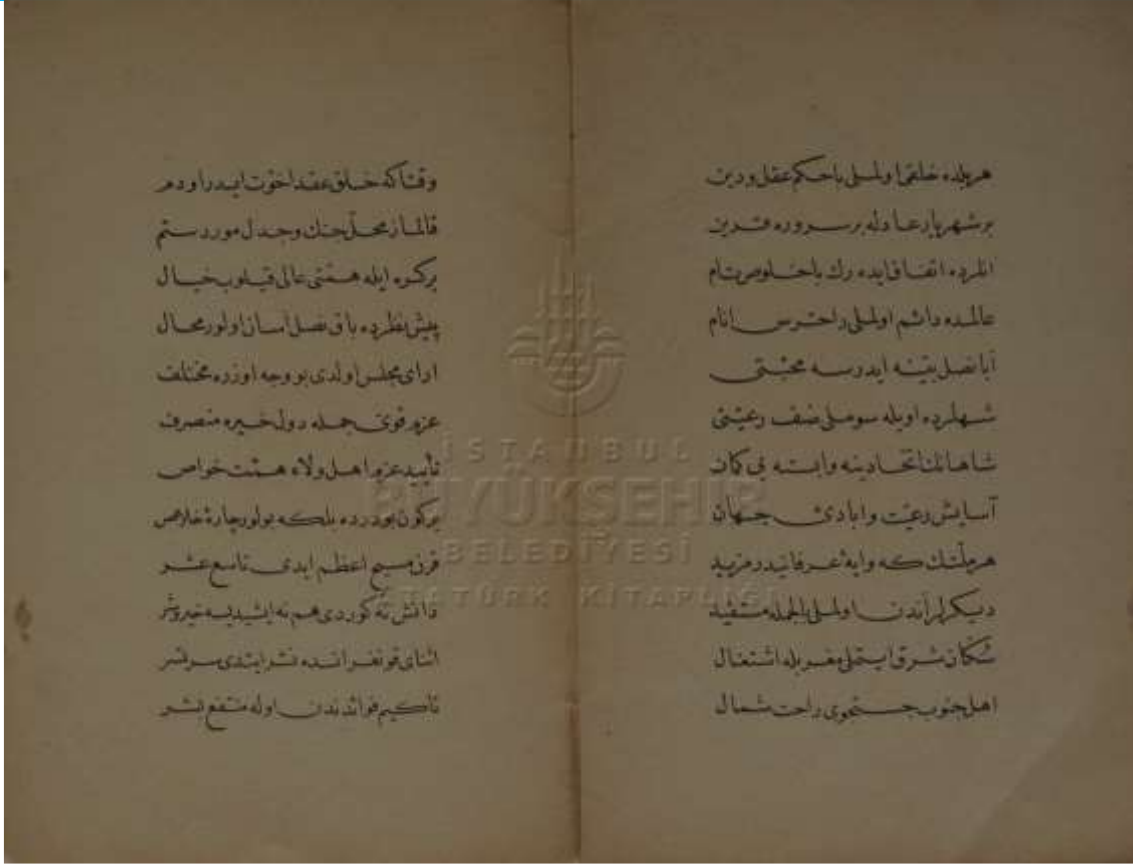 هر یلده خلقی اولملی باحکم عقل و دین
بر شهریار عادله بر سروره قرین
انلرده اتفاق ایده رك باخلوص تام
عالمده دائم اولملی راحترس انام
آبا نصل بتینه ایدرسه محبتی
شهلرده اویله سوملی صنف رعیتی
شاهانك اتحادینه وابسته بی کمان
آسایش رعیت و ابادئ جهان
هر ملتك که وایهٔ عرفانیدر مزید
دیکرلر آندن اولملی بالجمله مستفید
سکان شرق ایتملی غرب ایله اشتغال
اهل جنوب جستجوی راحت شمال
وقتاکه خلق عقد اخوت ایدر او دم
قالماز محل جنك و جدل مور د ستم
برکره ایله همتی عالی قیلوب خیال
پیش نظرده باق نصل آسان اولور محال
ارای مجلس اولدی بو وجه اوزره مختلف
عزم قوئ جمله دول خیره منصرف
تأیید عزم اهل ولاء همت خواص
برکون بو درده بلکه بولور چارهٔ خلاص
قرن مسیح اعظم ایدی تاسع عشر
نه کوردی هم نه ایشیدیسه خیر و شر
اثنای قونفرانسده نشر ایتدی سر تسر
تاکیم فوائدندن اوله منتفع بشر
İSTANBUL
BÜYÜKŞEHİR
BELEDİYESİ
ATATÜRK KİTAPLIĞI